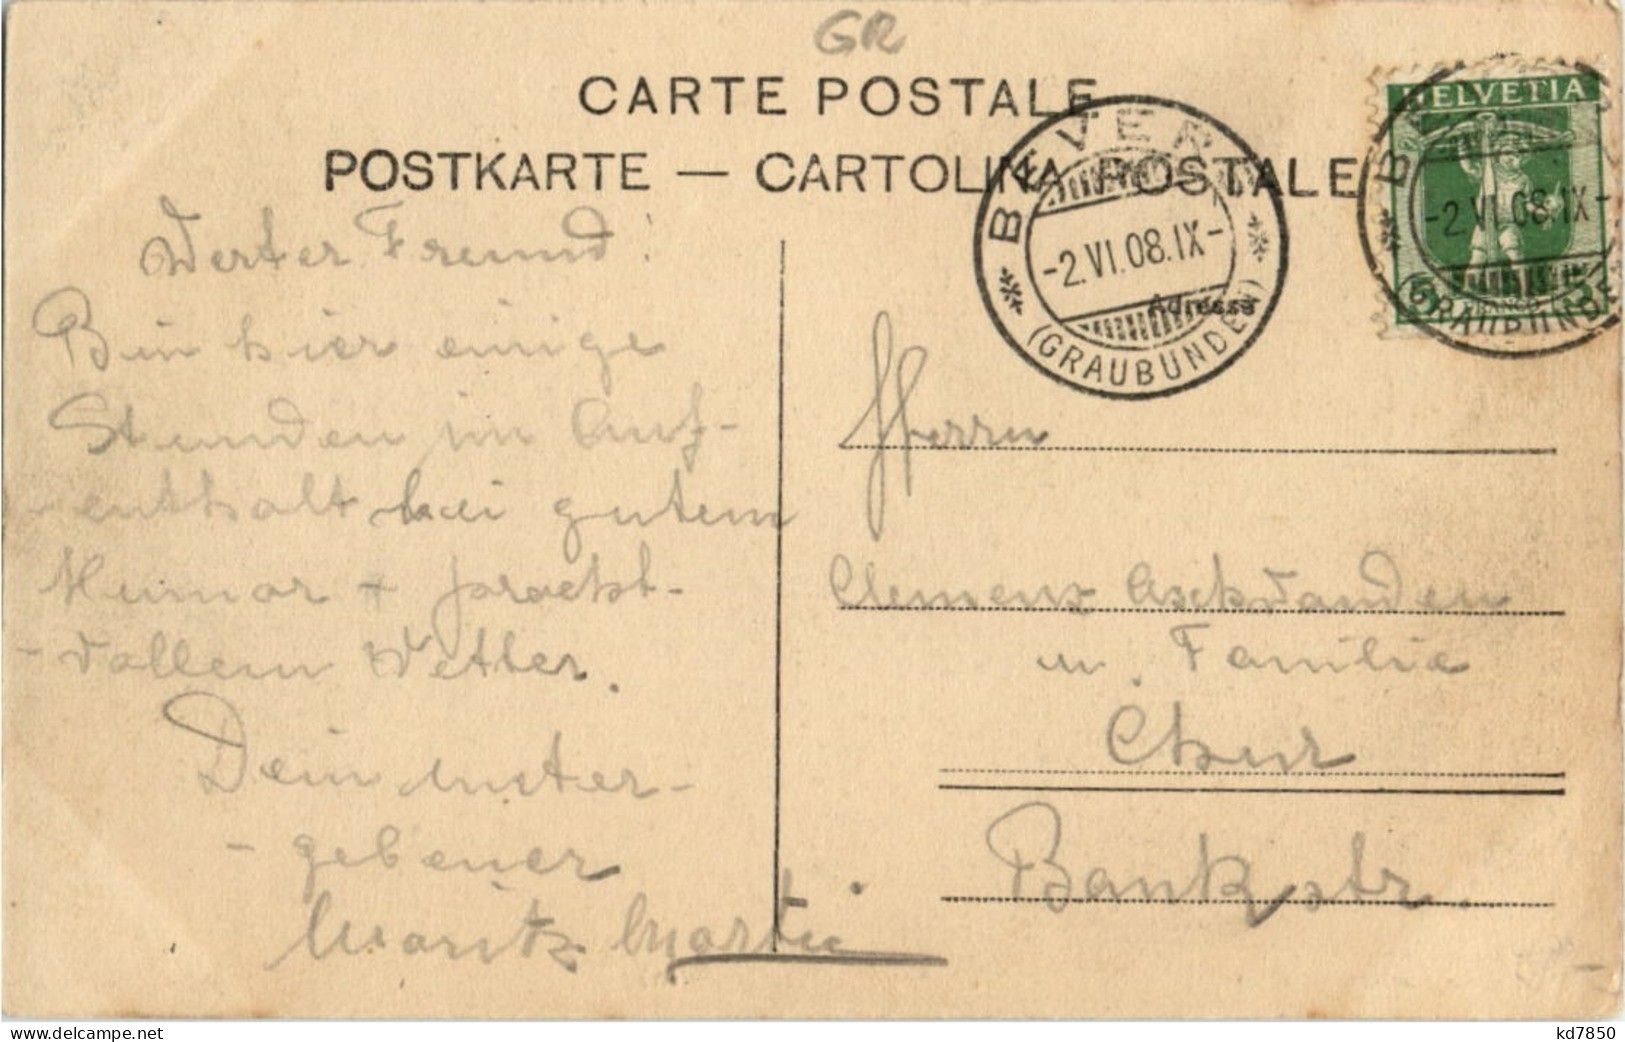 GR
CARTE POSTALE
POSTKARTE — CARTOLINA POSTALE
HELVETIA
BEVERS
-2.VI.08.IX-
(GRAUBÜNDEN)
B
-2.VI.08.IX-
(GRAUBÜNDE
Adresse
Werter Freund!
Bin hier einige
Stunden im Auf-
enthalt bei gutem
Humor + pracht-
-vollem Wetter.
Dein unter-
-gebener
Moritz
Herrn
Clemenz
u. Familie
Chur
Bankstr.
www.delcampe.net
kd7850